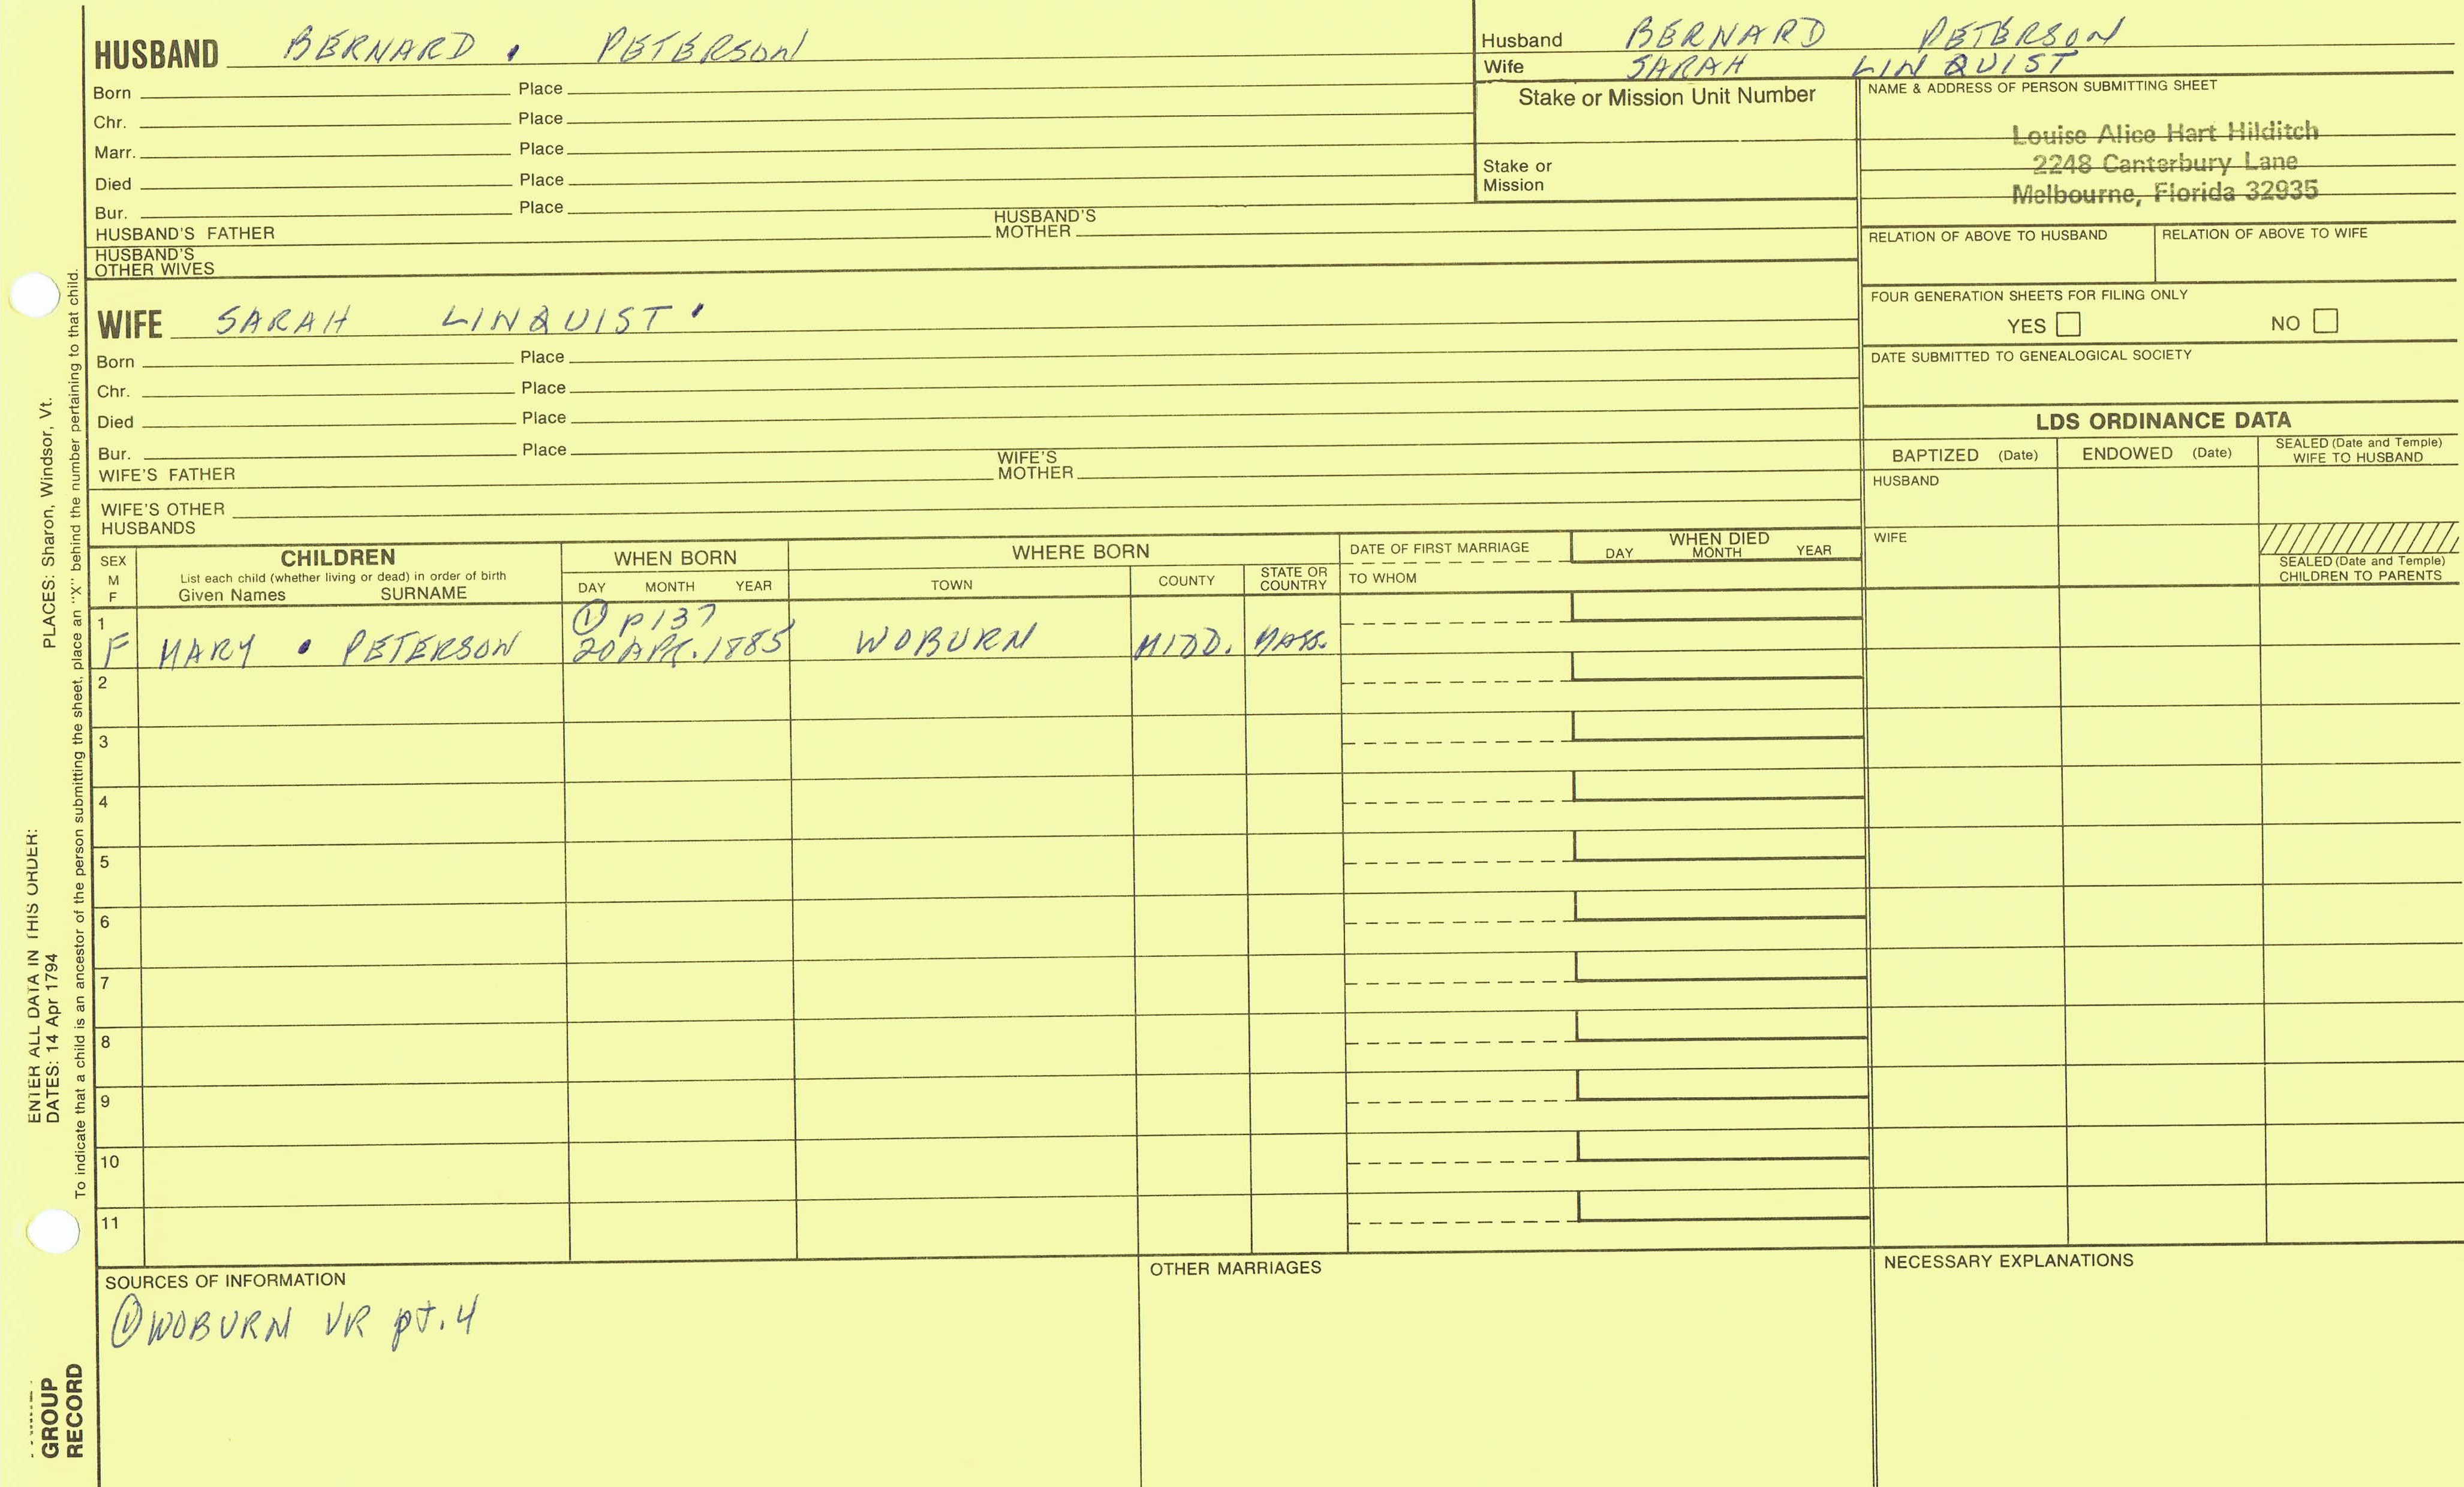 HUSBAND BERNARD . PETERSON
Born Place
Chr. Place
Marr. Place
Died Place
Bur. Place
HUSBAND'S FATHER HUSBAND'S MOTHER
HUSBAND'S OTHER WIVES
WIFE SARAH LINQUIST .
Born Place
Chr. Place
Died Place
Bur. Place
WIFE'S FATHER WIFE'S MOTHER
WIFE'S OTHER HUSBANDS
Husband BERNARD PETERSON
Wife SARAH LINQUIST
Stake or Mission Unit Number
Stake or Mission
NAME & ADDRESS OF PERSON SUBMITTING SHEET
Louise Alice Hart Hilditch
2248 Canterbury Lane
Melbourne, Florida 32935
RELATION OF ABOVE TO HUSBAND RELATION OF ABOVE TO WIFE
FOUR GENERATION SHEETS FOR FILING ONLY
YES NO
DATE SUBMITTED TO GENEALOGICAL SOCIETY
LDS ORDINANCE DATA
BAPTIZED (Date) ENDOWED (Date) SEALED (Date and Temple) WIFE TO HUSBAND
HUSBAND
WIFE
SEALED (Date and Temple) CHILDREN TO PARENTS
SEX M F
CHILDREN
List each child (whether living or dead) in order of birth
Given Names SURNAME
WHEN BORN
DAY MONTH YEAR
WHERE BORN
TOWN COUNTY STATE OR COUNTRY
DATE OF FIRST MARRIAGE
TO WHOM
WHEN DIED
DAY MONTH YEAR
1 ① P137
F MARY . PETERSON 20 APR. 1885 WOBURN MIDD. MASS.
2
3
4
5
6
7
8
9
10
11
SOURCES OF INFORMATION
① WOBURN VR pt. 4
OTHER MARRIAGES
NECESSARY EXPLANATIONS
ENTER ALL DATA IN THIS ORDER:
DATES: 14 Apr 1794 PLACES: Sharon, Windsor, Vt.
To indicate that a child is an ancestor of the person submitting the sheet, place an "X" behind the number pertaining to that child.
GROUP
RECORD